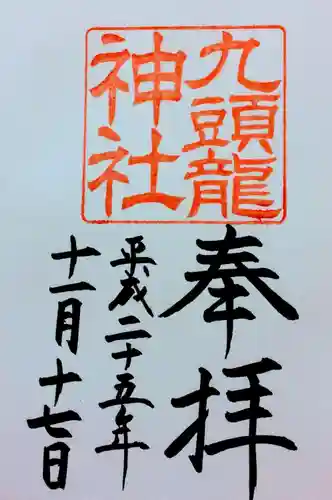 九頭龍
神社
奉拝
平成二十五年
十一月十七日